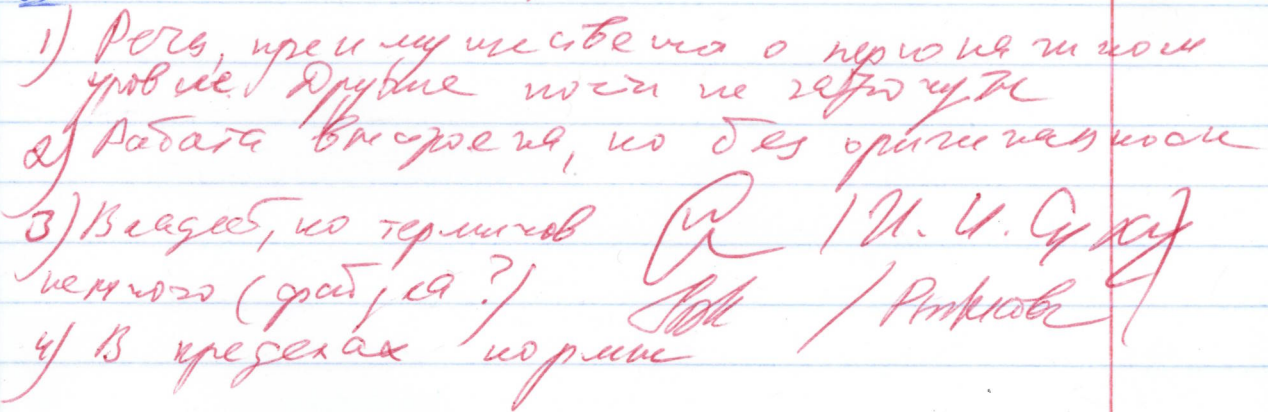 1) Речь, преимущественно о персонажном
уровне. Другие почти не затронуты
2) Работа выстроена, но без оригинальности
3) Владеет, но терминов
немного (фабула?)
/ И. И. Сухих /
4) В пределах нормы